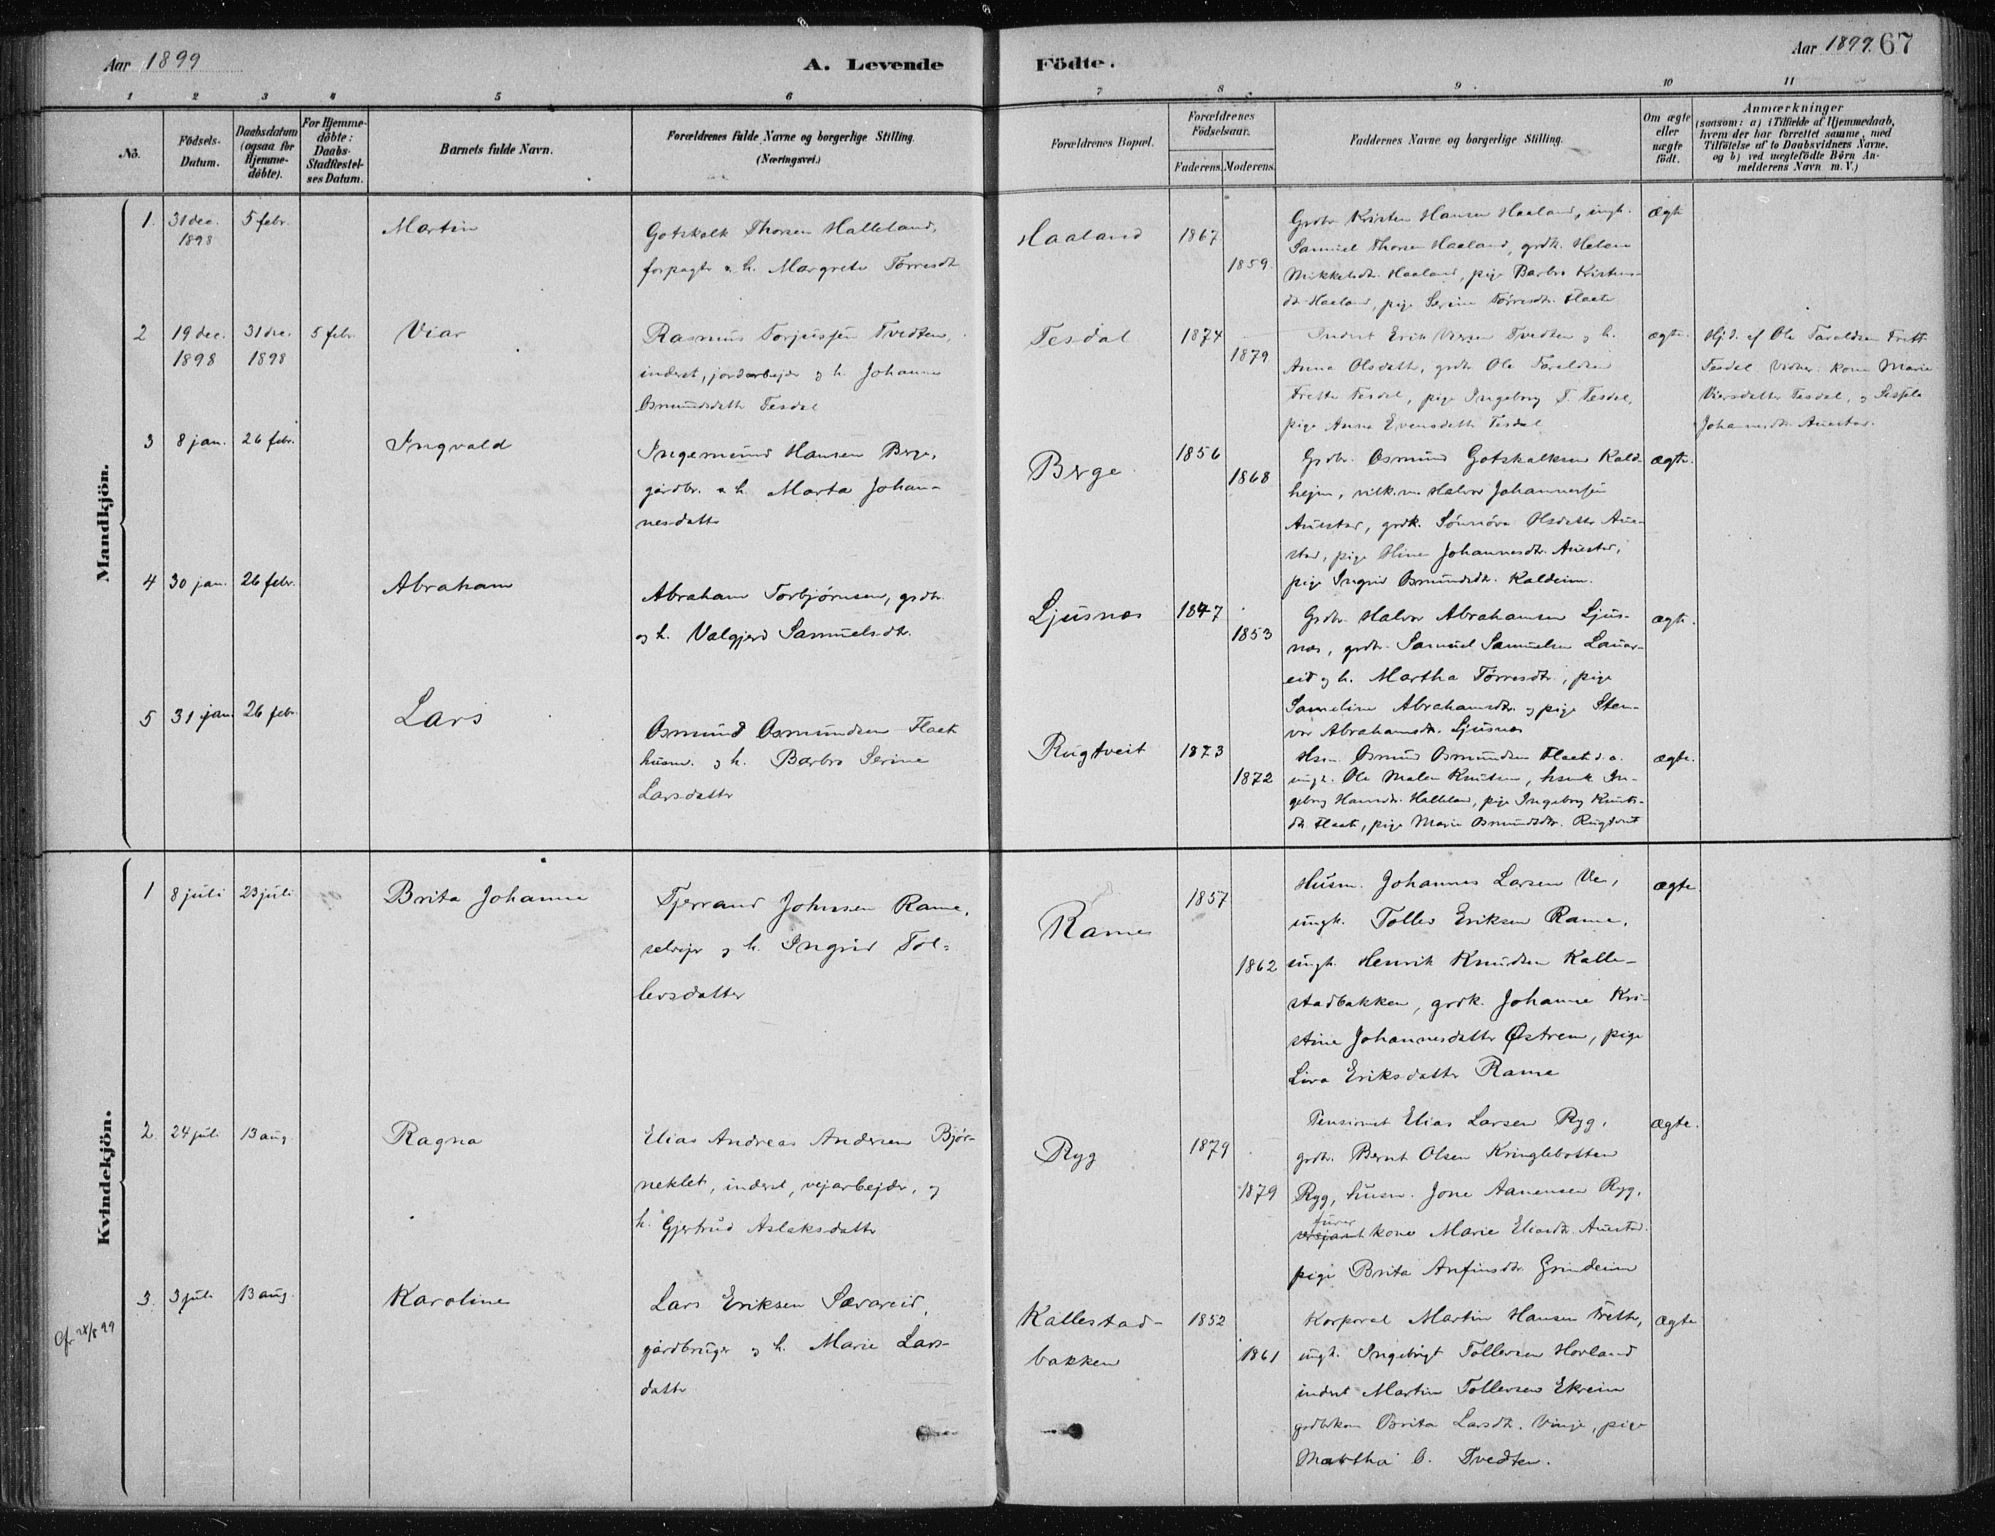 Aar 1899
A. Levende
Födte.
Aar 1899. 67
1 2 3 4 5 6 7 8 9 10 11
No.
Födsels-Datum.
Daabsdatum (ogsaa for Hjemme-döbte).
For Hjemme-döbte: Daabs-Stadfæstel-ses Datum.
Barnets fulde Navn.
Forældrenes fulde Navne og borgerlige Stilling.
(Næringsvei.)
Forældrenes Bopæl.
Forældrenes Födselsaar.
Faderens. Moderens.
Faddernes Navne og borgerlige Stilling.
Om ægte eller uægte födt.
Anmærkninger
(saasom: a) i Tilfælde af Hjemmedaab,
hvem der har forrettet samme, med
Tilföielse af to Daabsvidners Navne,
og b) ved uægtefödte Börn An-
melderens Navn m. V.)
Mandkjön.
1. 31 dec. 1898 5 febr. Martin
Gotskalk Thorsen Halleland,
forpagtr o. h. Margrete Tørresdt
Haaland 1867 1859.
Grdbr Kristen Hansen Haaland, ungk.
Samuel Thorsen Haaland, grdk. Helene
Mikkelsdt. Haaland, pige Barbro Kristens-
dt. Haaland, pige Serine Tørresdtr. Flaate
ægte
2 19 dec. 1898 31 dec. 1898 5 febr. Viar
Rasmus Torjussen Tvedten,
inderst, jordarbejdr og h. Johanne
Osmundsdattr Tesdal
Tesdal 1874 1879
Inderst Erik Viersen Tvedten og h.
Anna Olsdattr, grdbr Ole Taraldsen
Frette Tesdal, pige Ingeborg T. Tesdal,
pige Anna Evensdattr Tesdal
ægte.
Hjd. af Ole Taraldsen Frette
Tesdal Vidner: kone Marie
Viersdatter Tesdal, og Sissela
Johannesdt. Auestad.
3 8 jan. 26 febr. Ingvald
Ingemund Hansen Berge,
gardbr. o. h. Marta Johan-
nesdattr
Berge 1856 1868
Grdbr. Osmund Gotskalksen Kald-
hejm, Halvor Johannessen
Auestad, grdk. Sønnøva Olsdatter Aue-
stad, pige Stine Johannesdtr. Auestad,
pige Ingrid Osmundsdtr. Kaldeim.
ægte.
4 30 jan. 26 febr. Abraham
Abraham Torbjørnsen, grdbr.
og h. Valgjerd Samuelsdtr.
Ljusnæs 1847 1853
Grdbr Halvor Abrahamsen Ljus-
næs, grdbr. Samuel Samuelsen Lauar-
eid og h. Martha Tørresdtr., pige
Sameline Abrahamsdtr. og pige Sten-
vor Abrahamsdtr. Ljusnæs
ægte.
5 31 jan. 26 febr. Lars
Osmund Osmundsen Flaat
husm. og h. Barbro Serine
Larsdatter
Rugtveit 1873 1872
Hsm. Osmund Osmundsen Flaat d. a.
ungk. Ole Malen Knutsen, husmk. In-
geborg Hansdtr. Halleland, pige Ingeborg Knuts-
dt. Flaate, pige Marie Osmundsdtr. Rugtveit
ægte.
Kvindekjön.
1 8 juli 23 juli Brita Johanne
Tjerrand Johnsen Rame,
selvejer og h. Ingrid Tol-
levsdatter
Rame 1857 1862
Husm. Johannes Larsen Ve,
ungk. Tollev Eriksen Rame,
ungk. Henrik Knudsen Kalle-
stadbakken, grdk. Johanne Kri-
stine Johannesdatter Østrem, pige
Liva Eriksdatter Rame
ægte
2. 24 juli 13 aug. Ragna
Elias Andreas Andersen Bjør-
neklet, inderst, vejarbejder, og
h. Gjertrud Aslaksdatter
Ryg 1879 1879
Pensionist Elias Larsen Ryg,
grdbr. Bernt Olsen Kringlebotten
Ryg, husm. Jone Aanensen Ryg,
furer
sersjant kone Marie Eliasdtr. Auestad.
pige Brita Anfinsdtr. Grindeim
ægte.
3. 3 juli 13 aug. Karoline
Cfr 28/8 99
Lars Eriksen Sævareid,
gardbruger og h. Marie Lars-
datter
Kallestad-
bakken 1852 1861
Korporal Martin Hansen Frette,
ungk. Ingebrigt Tollevsen Hovland
inderst Martin Tollevsen Ekreim
grdbrkone Brita Larsdtr. Vinje, pige
Martha O. Tvedten.
ægte